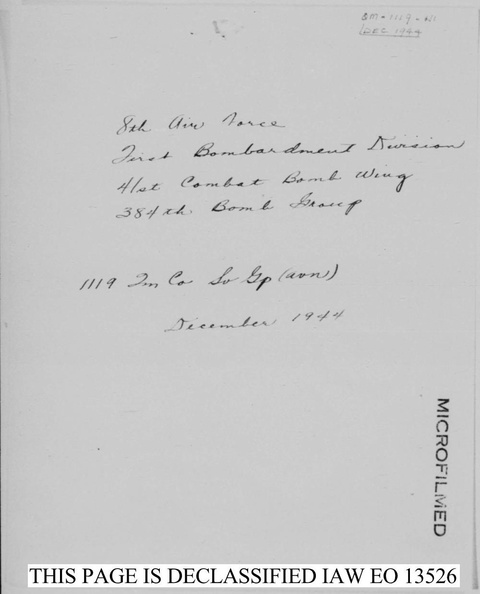 DEC 1944
8th Air Force
First Bombardment Division
41st Combat Bomb Wing
384th Bomb Group
1119 Qm Co Sv Gp (avn)
December 1944
MICROFILMED
THIS PAGE IS DECLASSIFIED IAW EO 13526